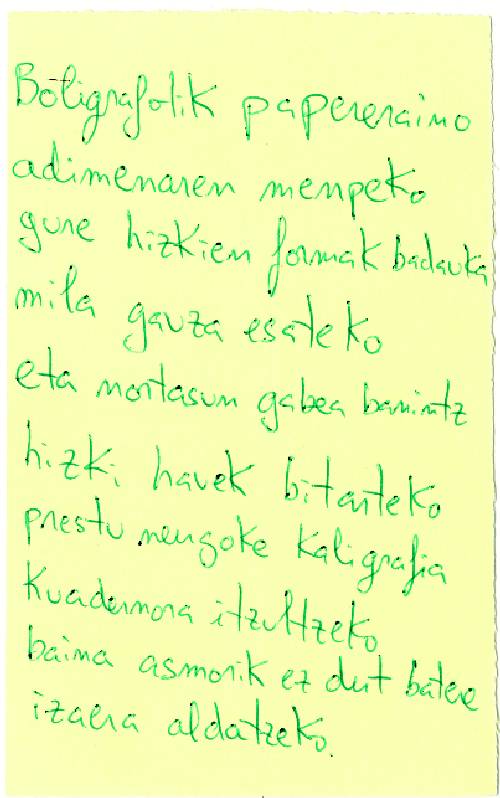 Boligrafotik papereraino
adimenaren menpeko
gure hizkien formak badauka
mila gauza esateko
eta nortasun gabea banintz
hizki hauek bitarteko
prestu nengoke kaligrafia
kuadernora itzultzeko
baina asmorik ez dut batere
izaera aldatzeko.